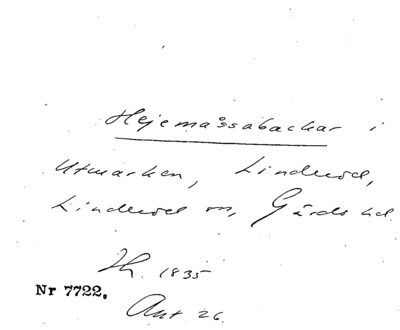 Hejemåssabackar i
Utmarken, Linderöd,
Linderöds sn, Gärds hd.
Lh. 1835
Nr 7722.
Ant 26.